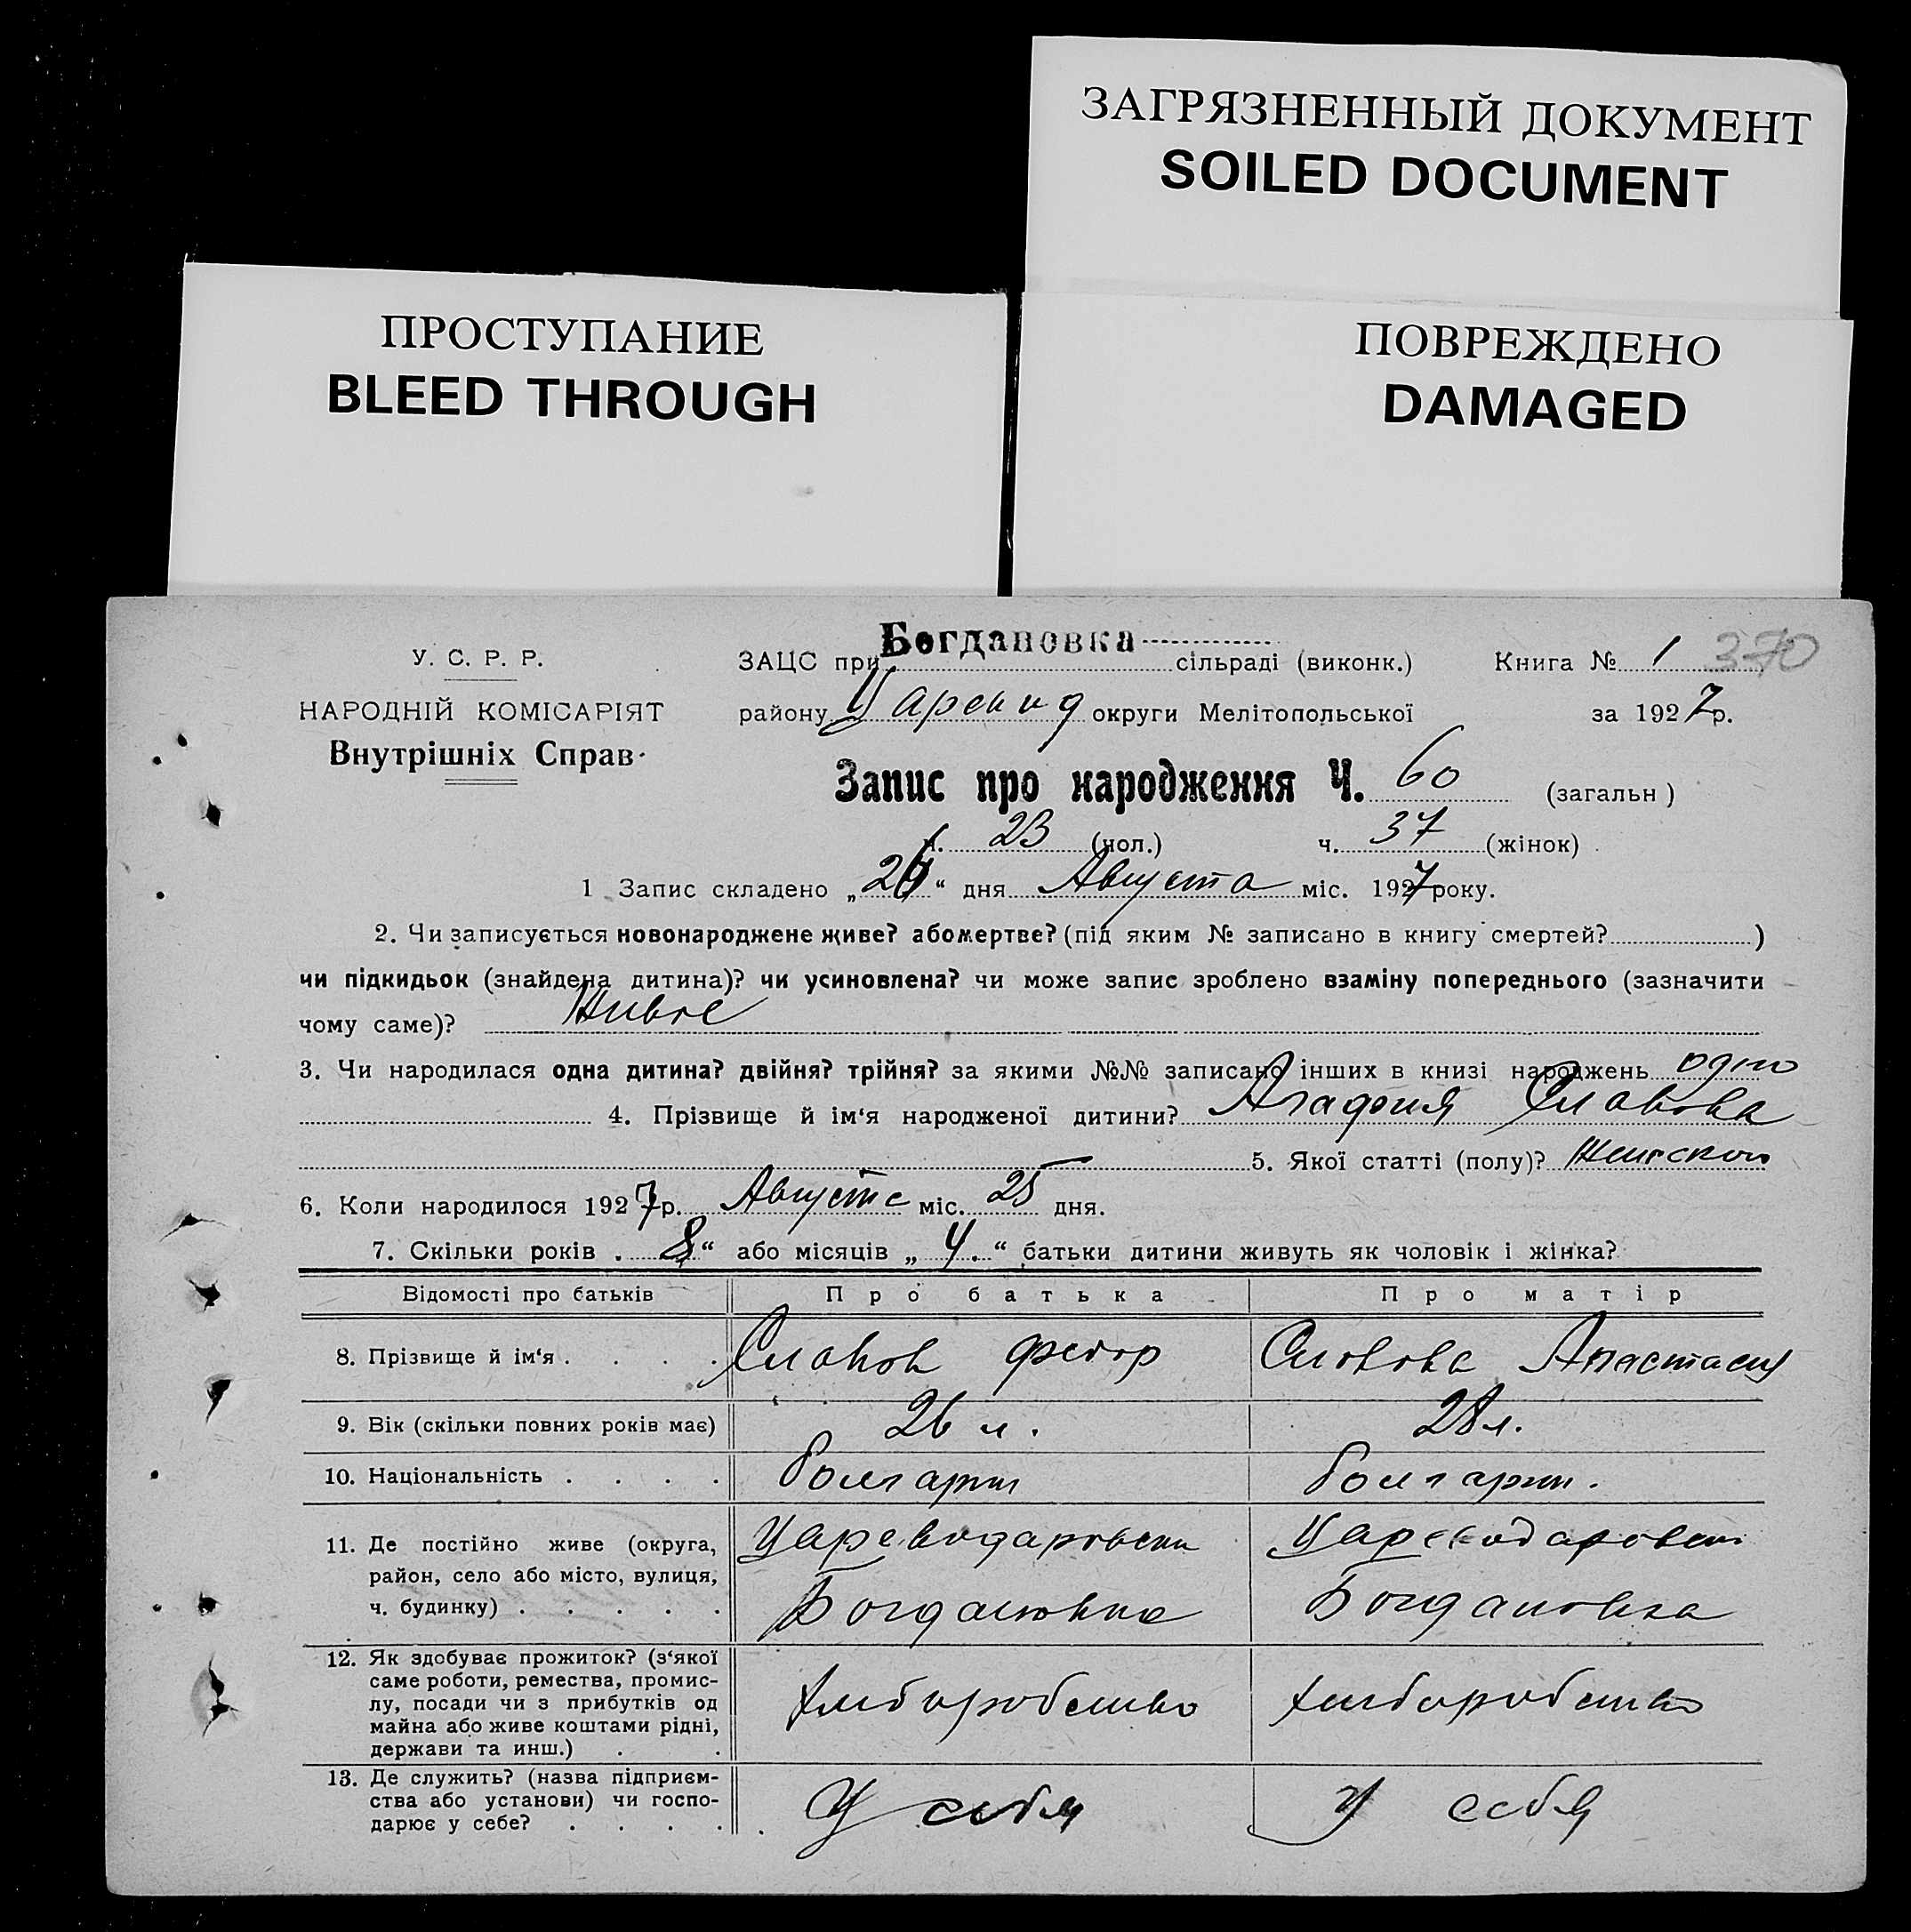 ЗАГРЯЗНЕННЫЙ ДОКУМЕНТ
SOILED DOCUMENT
ПРОСТУПАНИЕ
BLEED THROUGH
ПОВРЕЖДЕНО
DAMAGED
У. С. Р. Р.
НАРОДНІЙ КОМІСАРІЯТ
Внутрішніх Справ
ЗАЦС при Богдановка сільраді (виконк.) Книга № 1 370
району округи Мелітопольської за 1927 р.
Запис про народження Ч. 60 (загальн)
ч. 23 (чол.) ч. 37 (жінок)
1 Запис складено „ “ дня Августа міс. 1927 року.
2. Чи записується новонароджене живе? або мертве? (під яким № записано в книгу смертей? )
чи підкидьок (знайдена дитина)? чи усиновлена? чи може запис зроблено взаміну попереднього (зазначити
чому саме)? Живое
3. Чи народилася одна дитина? двійня? трійня? за якими №№ записано інших в книзі народжень одно
4. Прізвище й ім‘я народженої дитини? Агафия
5. Якої статті (полу)? Женской
6. Коли народилося 1927 р. Августа міс. 25 дня.
7. Скільки років „ 8 “ або місяців „ 4. “ батьки дитини живуть як чоловік і жінка?
Відомості про батьків Про батька Про матір
8. Прізвище й ім‘я . . . . Федор Анастасия
9. Вік (скільки повних років має) 26 л. 28 л.
10. Національність . . . . болгарин болгарин.
11. Де постійно живе (округа,
район, село або місто, вулиця,
ч. будинку) . . . . .
Богдановка Богдановка
12. Як здобуває прожиток? (з‘якої
саме роботи, ремества, промис-
лу, посади чи з прибутків од
майна або живе коштами рідні,
держави та инш.) . .
хлеборобство хлеборобство
13. Де служить? (назва підприєм-
ства або установи) чи госпо-
дарює у себе? . . . .
У себя У себя